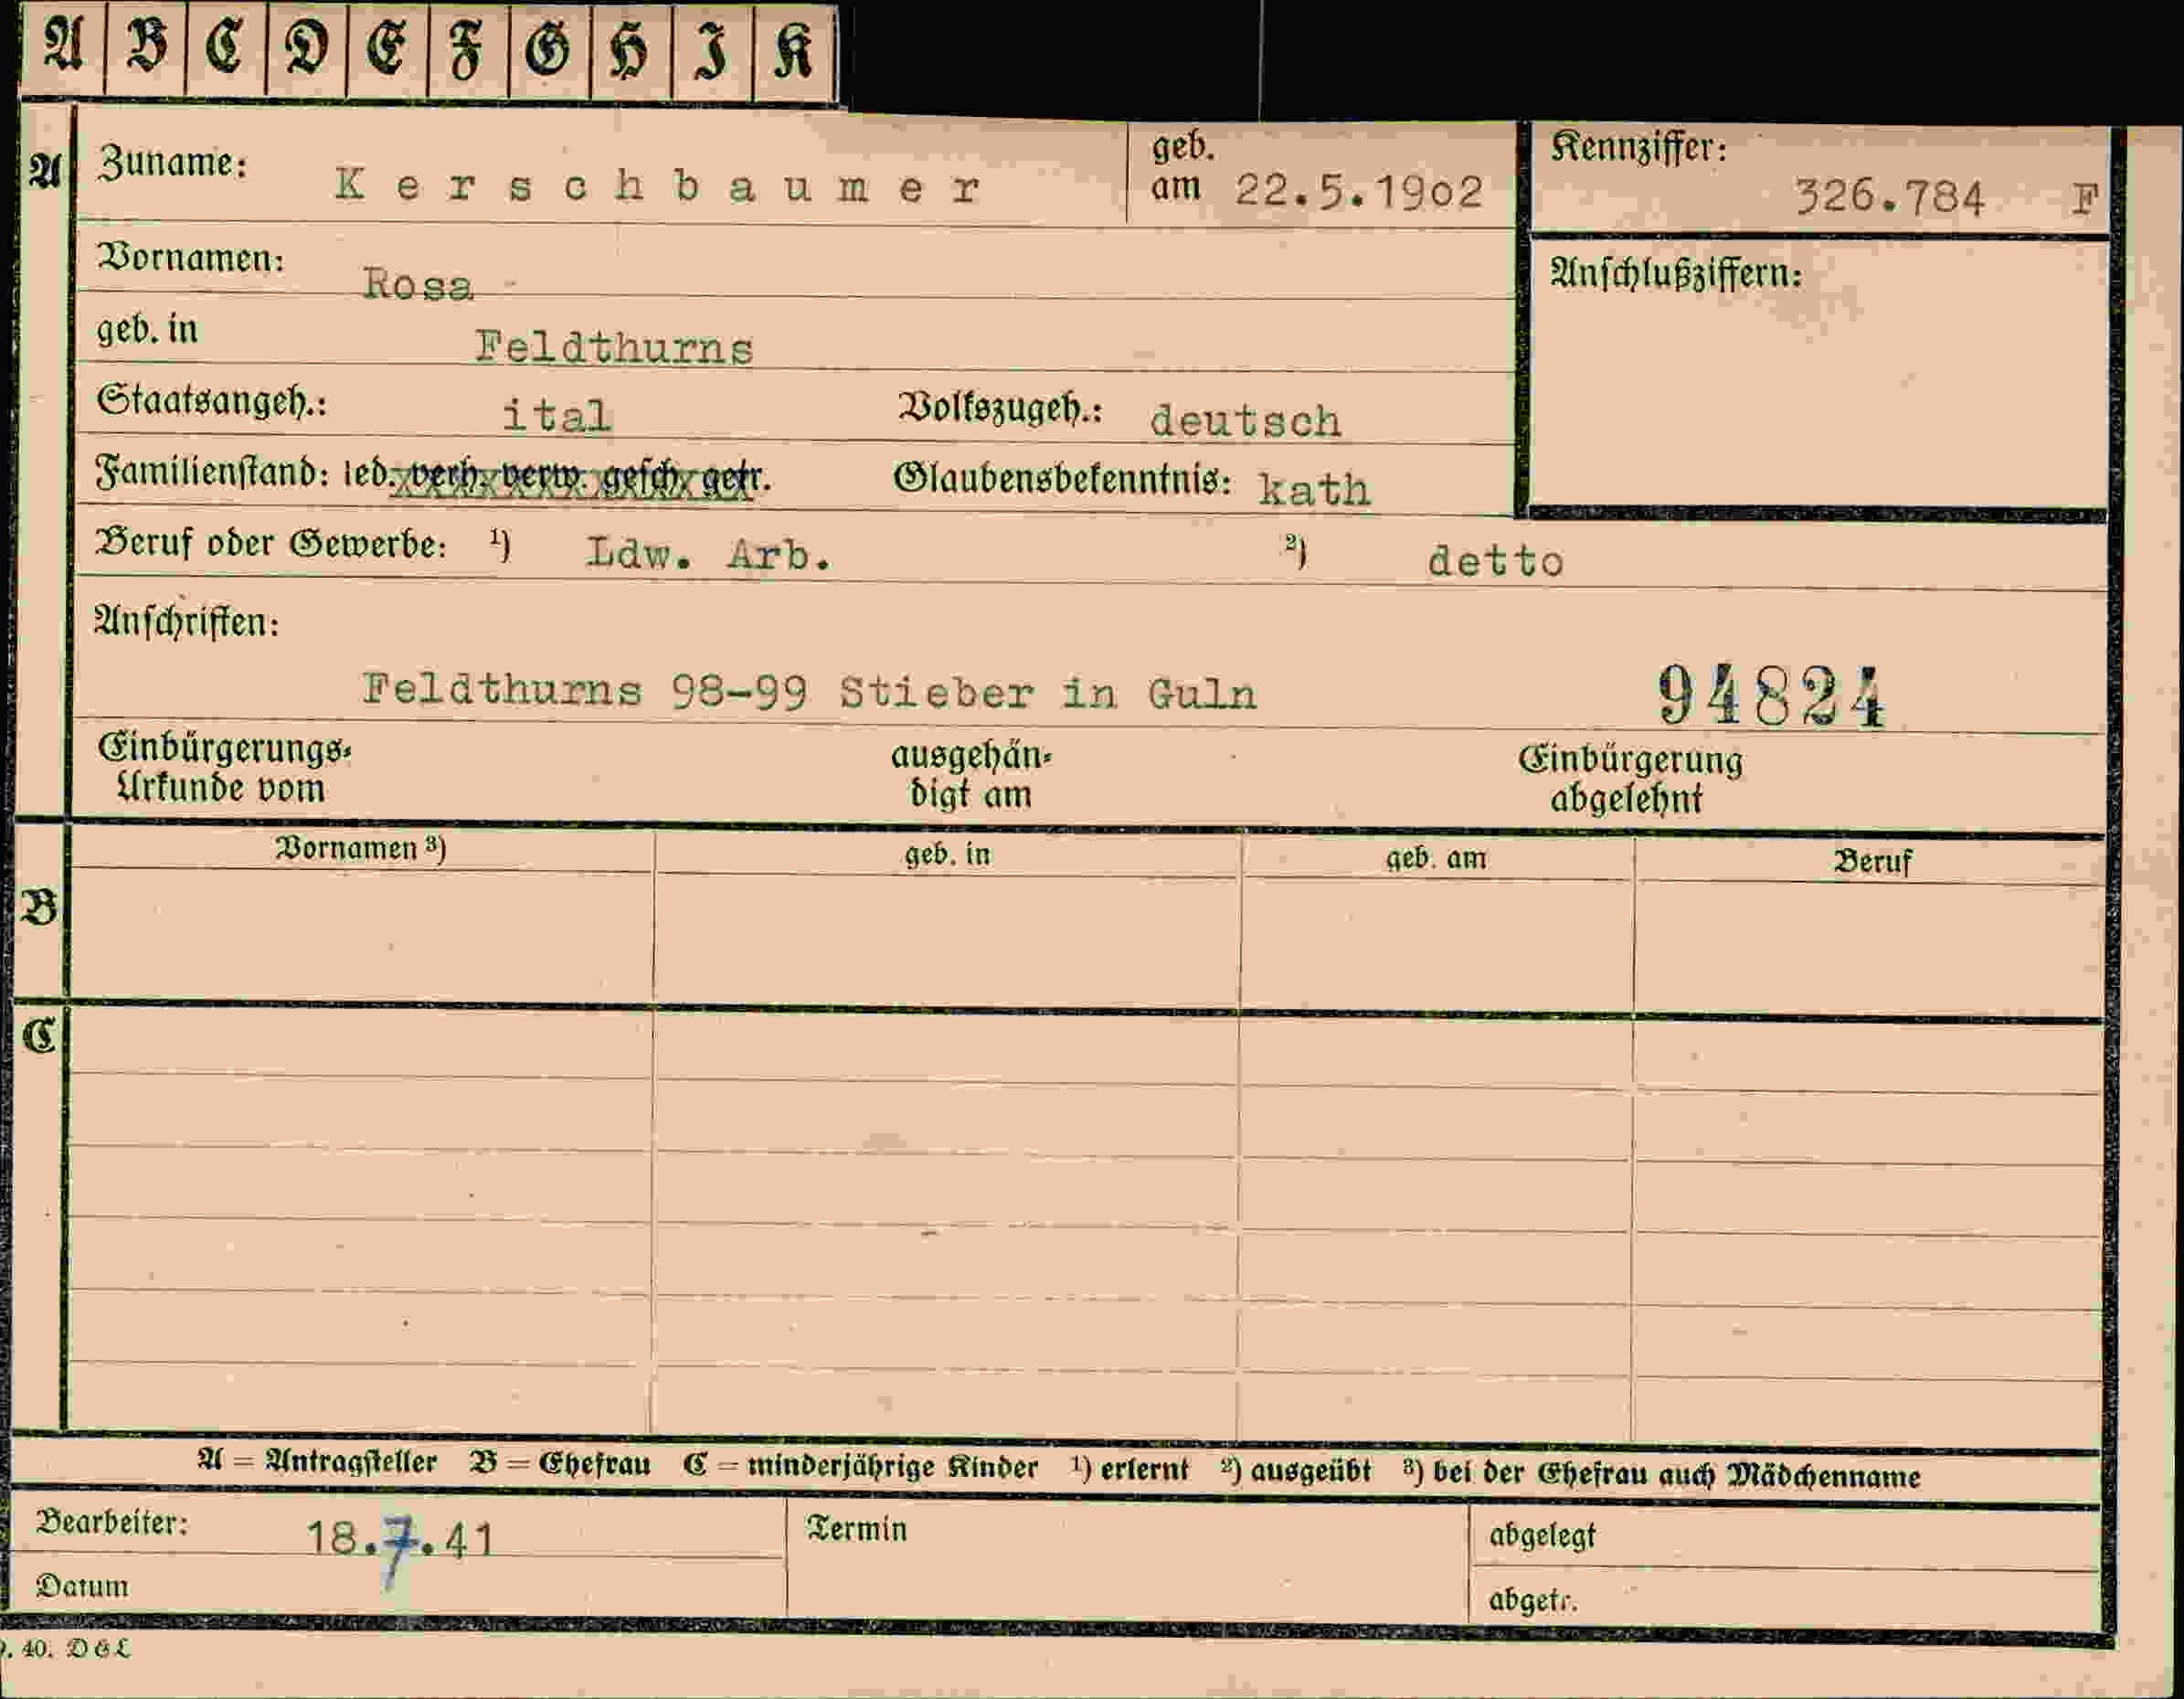 A B C D E F G H I K
A Zuname: Kerschbaumer geb. am 22.5.1902 Kennziffer: 326.784 F
Vornamen: Rosa
Anschlußziffern:
geb. in Feldthurns
Staatsangeh.: ital Volkszugeh.: deutsch
Familienstand: led. verh. verw. gesch. getr. Glaubensbekenntnis: kath
Beruf oder Gewerbe: ¹) Ldw. Arb. ²) detto
Anschriften:
Feldthurns 98-99 Stieber in Guln 94824
Einbürgerungs- ausgehän- Einbürgerung
Urkunde vom digt am abgelehnt
Vornamen ³) geb. in geb. am Beruf
B
C
A = Antragsteller B = Ehefrau C = minderjährige Kinder ¹) erlernt ²) ausgeübt ³) bei der Ehefrau auch Mädchenname
Bearbeiter: 18.7.41 Termin abgelegt
Datum abgetr.
. 40. DGL